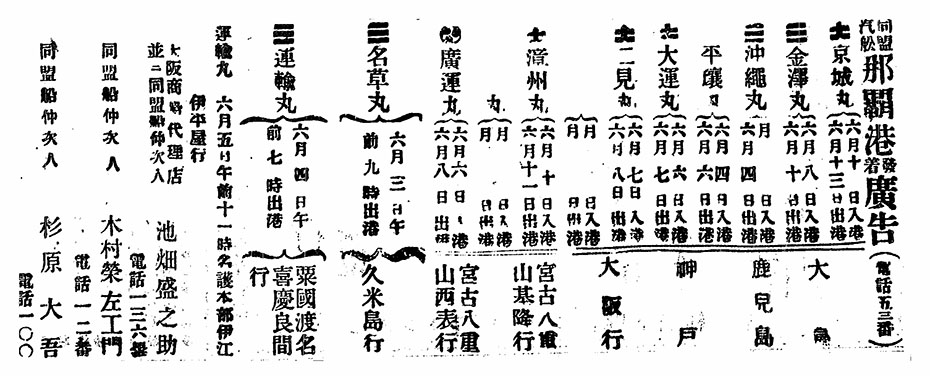 同盟汽舩那覇港發着廣告(電話五三番)
京城丸 六月十日入港 六月十三日出港
金澤丸 六月八日入港 六月十日出港
沖繩丸 月日入港 六月四日出港
平壤丸 六月四日入港 六月六日出港
大運丸 六月六日入港 六月七日出港
二見丸 六月七日入港 六月八日出港
月日入港 月日出港
大島 鹿兒島 神戸 大阪行
漳州丸 六月十日入港 六月十一日出港 宮古八重山基隆行
丸 月日入港 月日出港
廣運丸 六月六日入港 六月八日出港 宮古八重山西表行
名草丸 六月三日午前九時出港 久米島行
運輸丸 六月四日午前七時出港 粟國渡名喜慶良間行
運輸丸 六月五日午前十一時名護本部伊江伊平屋行
大阪商船代理店並ニ同盟船仲次人 池畑盛之助
電話一三六番
同盟船仲次人 木村榮左工門
電話一二番
同盟船仲次人 杉原大吾
電話一〇〇